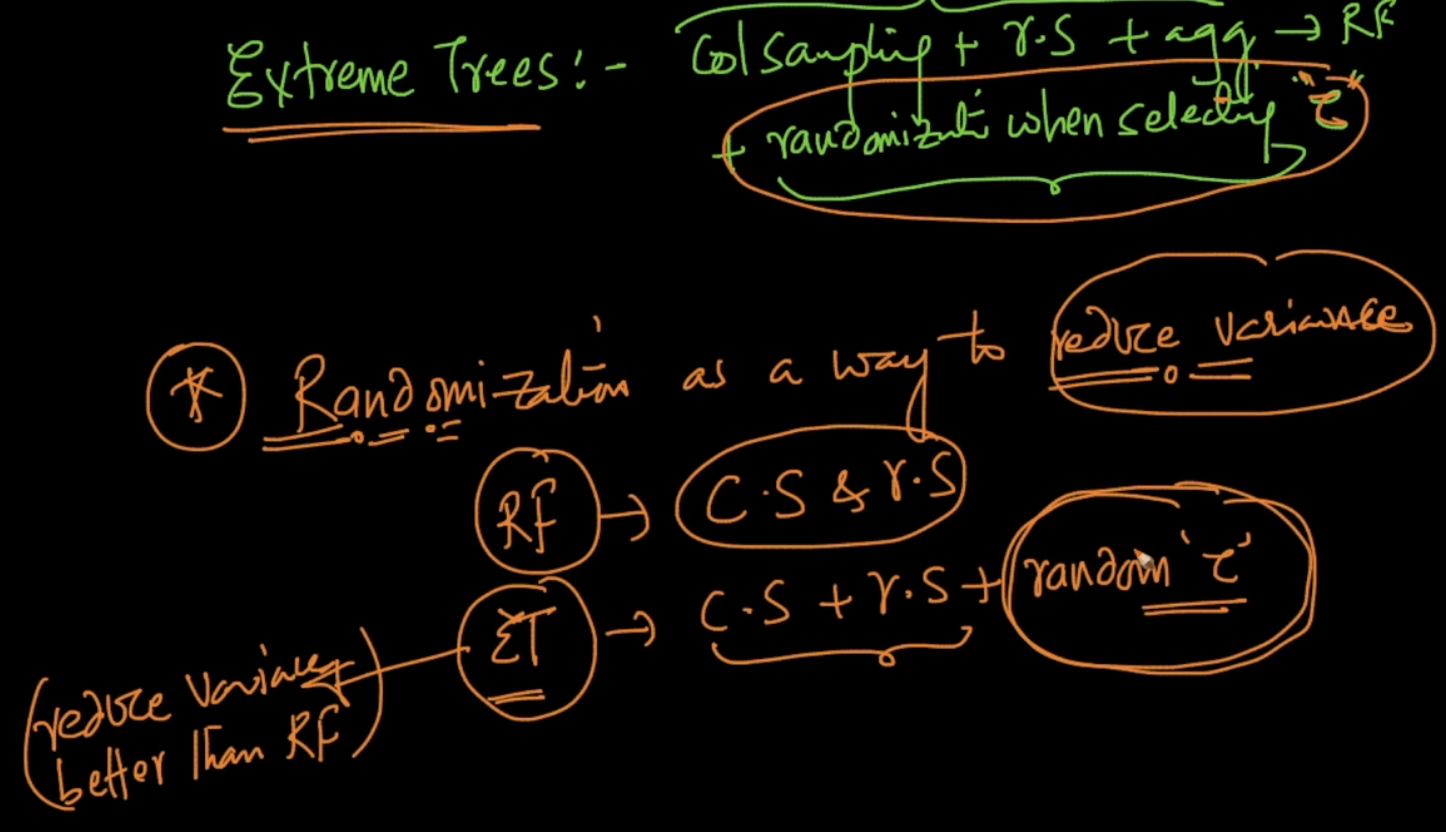 Extreme Trees:- Col Sampling + r.S + agg → RF
+ randomizatn when selecting "τ"
* Randomization as a way to reduce variance
RF → C.S & r.S
ET → C.S + r.S + random 'τ'
(reduce variance
better than RF)